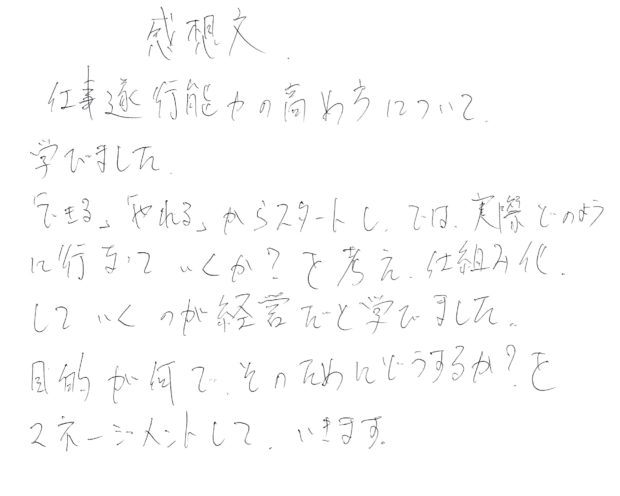 感想文.
仕事遂行能力の高め方について.
学びました.
「できる」「やれる」からスタートし、では、実際どのよう
に行なっていくか?を考え、仕組み化、
していくのが経営だと学びました。
目的が何で、そのためにどうするか?を
マネージメントして、いきます。